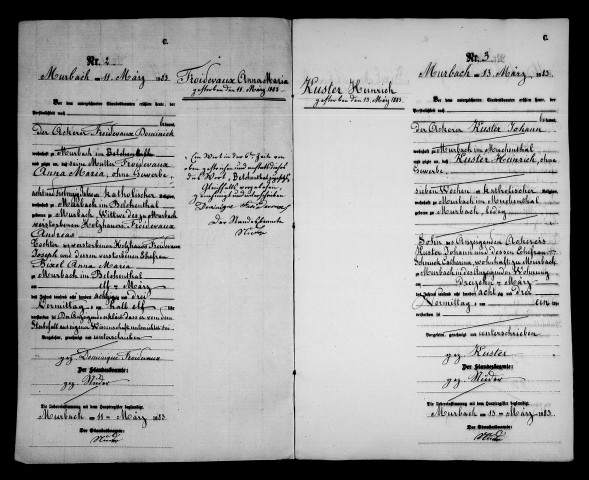 C.
Nr. 2
Murbach am 11. März 1883.
Vor dem unterzeichneten Standesbeamten erschien heute, der
Persönlichkeit nach
kannt,
der Ackerer Froidevaux Dominick
wohnhaft zu Murbach im Belchenthal
und zeigte an, daß seine Mutter Froidevaux
Anna Maria, ohne Gewerbe,
acht und siebenzig Jahre alt, katholischer Religion,
wohnhaft zu Murbach im Belchenthal
geboren zu Murbach, Wittwe des zu Murbach
verstorbenen Holzhauer Froidevaux
Andreas
Tochter des verstorbenen Holzhauer Froidevaux
Joseph und dessen verstorbenen Ehefrau
Anna Maria
zu Murbach im Belchenthal
am elf ten März
des Jahres tausend acht hundert achtzig und drei
Vormittags um halb elf Uhr
verstorben sei.
Vorgelesen, genehmigt und unterschrieben
gez. Dominique Froidevaux
Der Standesbeamte:
gez. Nieder
Die Uebereinstimmung mit dem Hauptregister beglaubigt.
Murbach am 11 ten März 1883.
Der Standesbeamte:
Nieder
Froidevaux Anna Maria
gestorben den 11. März 1883.
Ein Wort in der 6ten Zeile von
oben gestrichen und
das Wort, Belchenthal
vorgelesen,
genehmigt und unterschrieben
Dominique Froidevaux
Der Standesbeamte
Nieder
Kuster Heinrich
gestorben den 13. März 1883.
C.
Nr. 3
Murbach am 13. März 1883.
Vor dem unterzeichneten Standesbeamten erschien heute, der
Persönlichkeit nach
kannt,
der Ackerer Kuster Johann
wohnhaft zu Murbach im
und zeigte an, daß Kuster Heinrich, ohne
Gewerbe
sieben Wochen alt, katholischer Religion,
wohnhaft zu Murbach im
geboren zu Murbach, ledig
Sohn des Anzeigenden Ackerers
Kuster Johann und dessen Ehefrau
Schmuck Catharina, wohnhaft zu Murbach
zu Murbach in des Anzeigenden Wohnung
am dreizehn ten März
des Jahres tausend acht hundert achtzig und drei
Vormittags um ein Uhr
verstorben sei.
Vorgelesen, genehmigt und unterschrieben
gez. Kuster
Der Standesbeamte:
gez. Nieder
Die Uebereinstimmung mit dem Hauptregister beglaubigt.
Murbach am 13 ten März 1883.
Der Standesbeamte:
Nieder